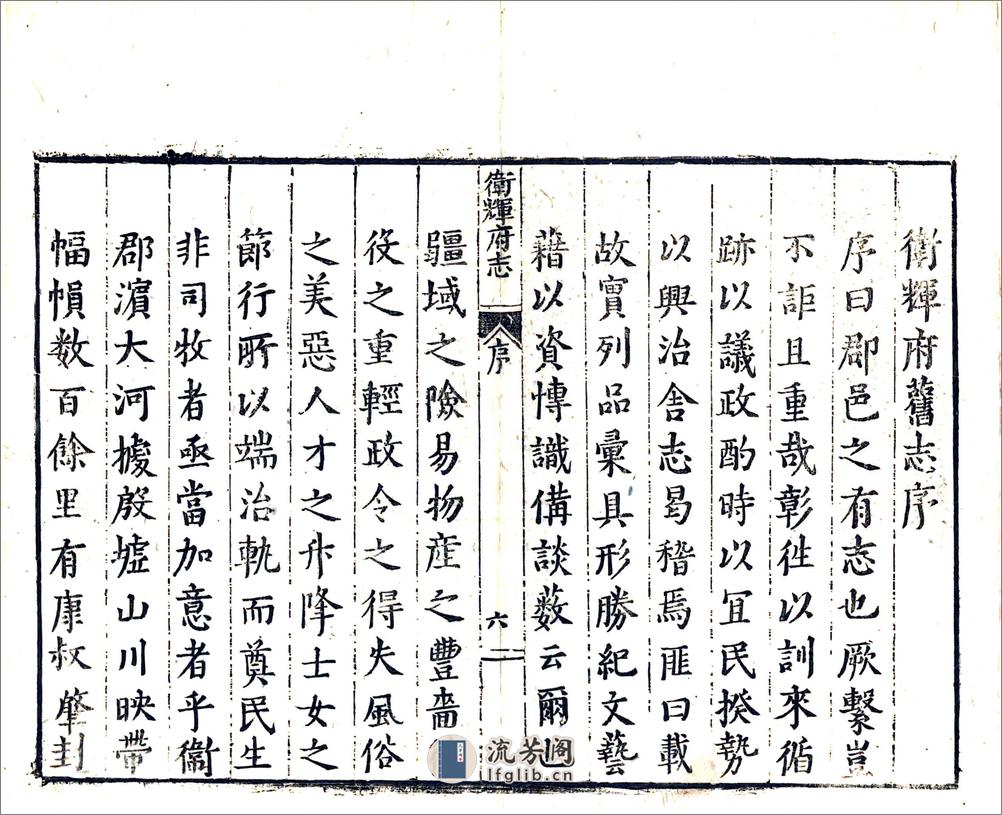 衛輝府舊志序
序曰郡邑之有志也厥繫豈
不詎且重哉彰徃以訓來循
跡以議政酌時以冝民揆勢
以興治舎志曷稽焉匪曰載
故實列品彙具形勝紀文藝
藉以資愽識俻談薮云爾
衛輝府志
序
六
二
疆域之險易物産之豐嗇
役之重輕政令之得失風俗
之美惡人才之升降士女之
節行所以端治軌而奠民生
非司牧者亟當加意者乎衛
郡濵大河據殷墟山川映帶
幅幀数百餘里有康叔肇封
流芳阁
lfglib.cn